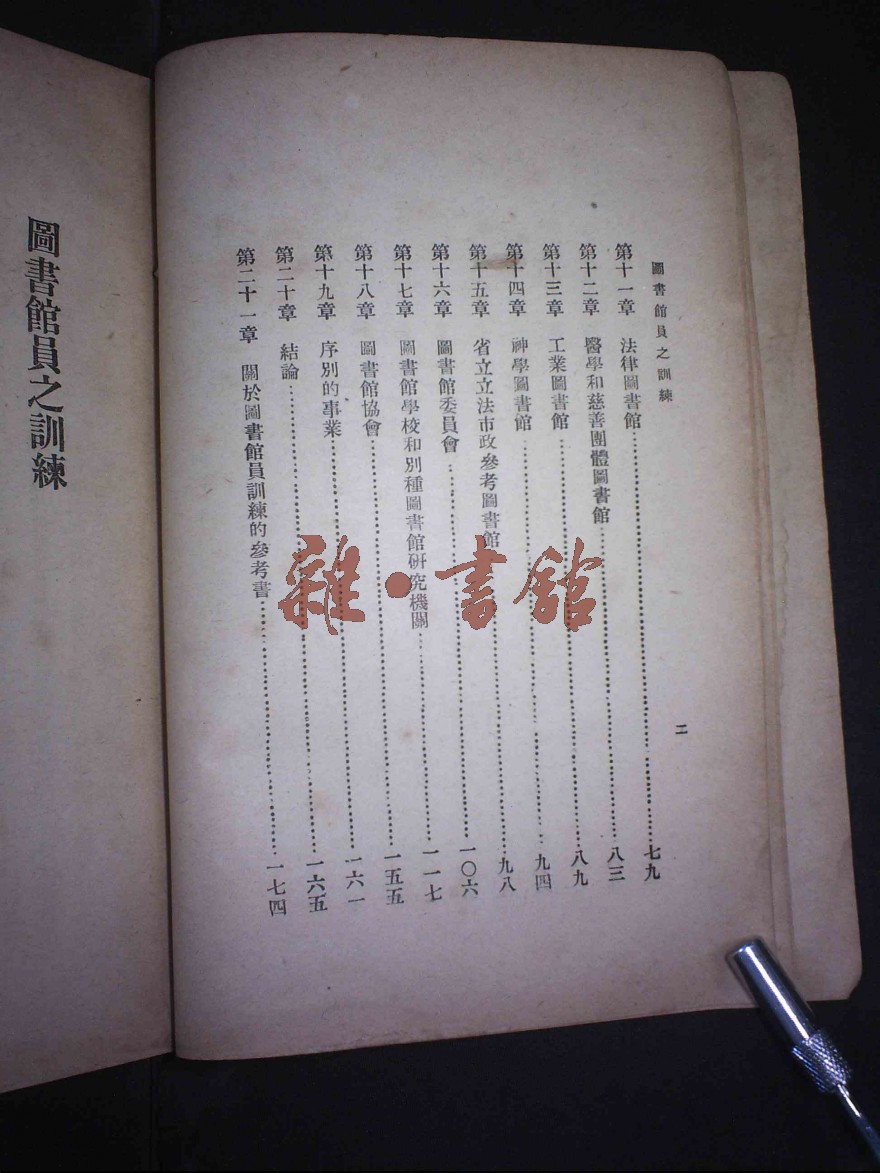 圖書館員之訓練
二
第十一章 法律圖書館……七九
第十二章 醫學和慈善團體圖書館……八三
第十三章 工業圖書館……八九
第十四章 神學圖書館……九四
第十五章 省立立法市政參考圖書館……九八
第十六章 圖書館委員會……一〇六
第十七章 圖書館學校和別種圖書館研究機關……一一七
第十八章 圖書館協會……一五五
第十九章 序別的事業……一六一
第二十章 結論……一六五
第二十一章 關於圖書館員訓練的參考書……一七四
圖書館員之訓練
雜·書館